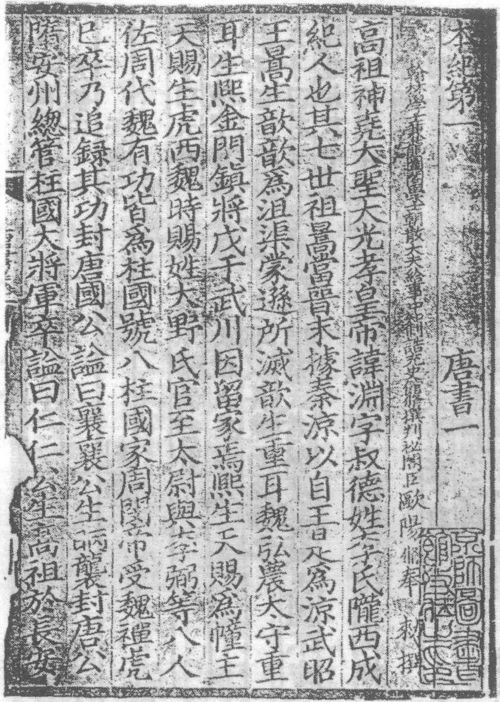 本紀第一 唐書一
翰林學士兼龍圖閣學士朝散大夫給事中知制誥充史館脩撰判祕閣臣歐陽脩奉 敕撰
高祖神堯大聖大光孝皇帝諱淵字叔德姓李氏隴西成
紀人也其七世祖暠當晉末據秦涼以自王是為涼武昭
王暠生歆歆為沮渠蒙遜所滅歆生重耳魏弘農太守重
耳生熙金門鎮將戍于武川因留家焉熙生天賜為幢主
天賜生虎西魏時賜姓大野氏官至太尉與李弼等八人
佐周代魏有功皆為柱國號八柱國家周閔帝受魏禪虎
已卒乃追録其功封唐國公諡曰襄襄公生昞襲封唐公
隋安州總管柱國大將軍卒諡曰仁仁公生高祖於長安